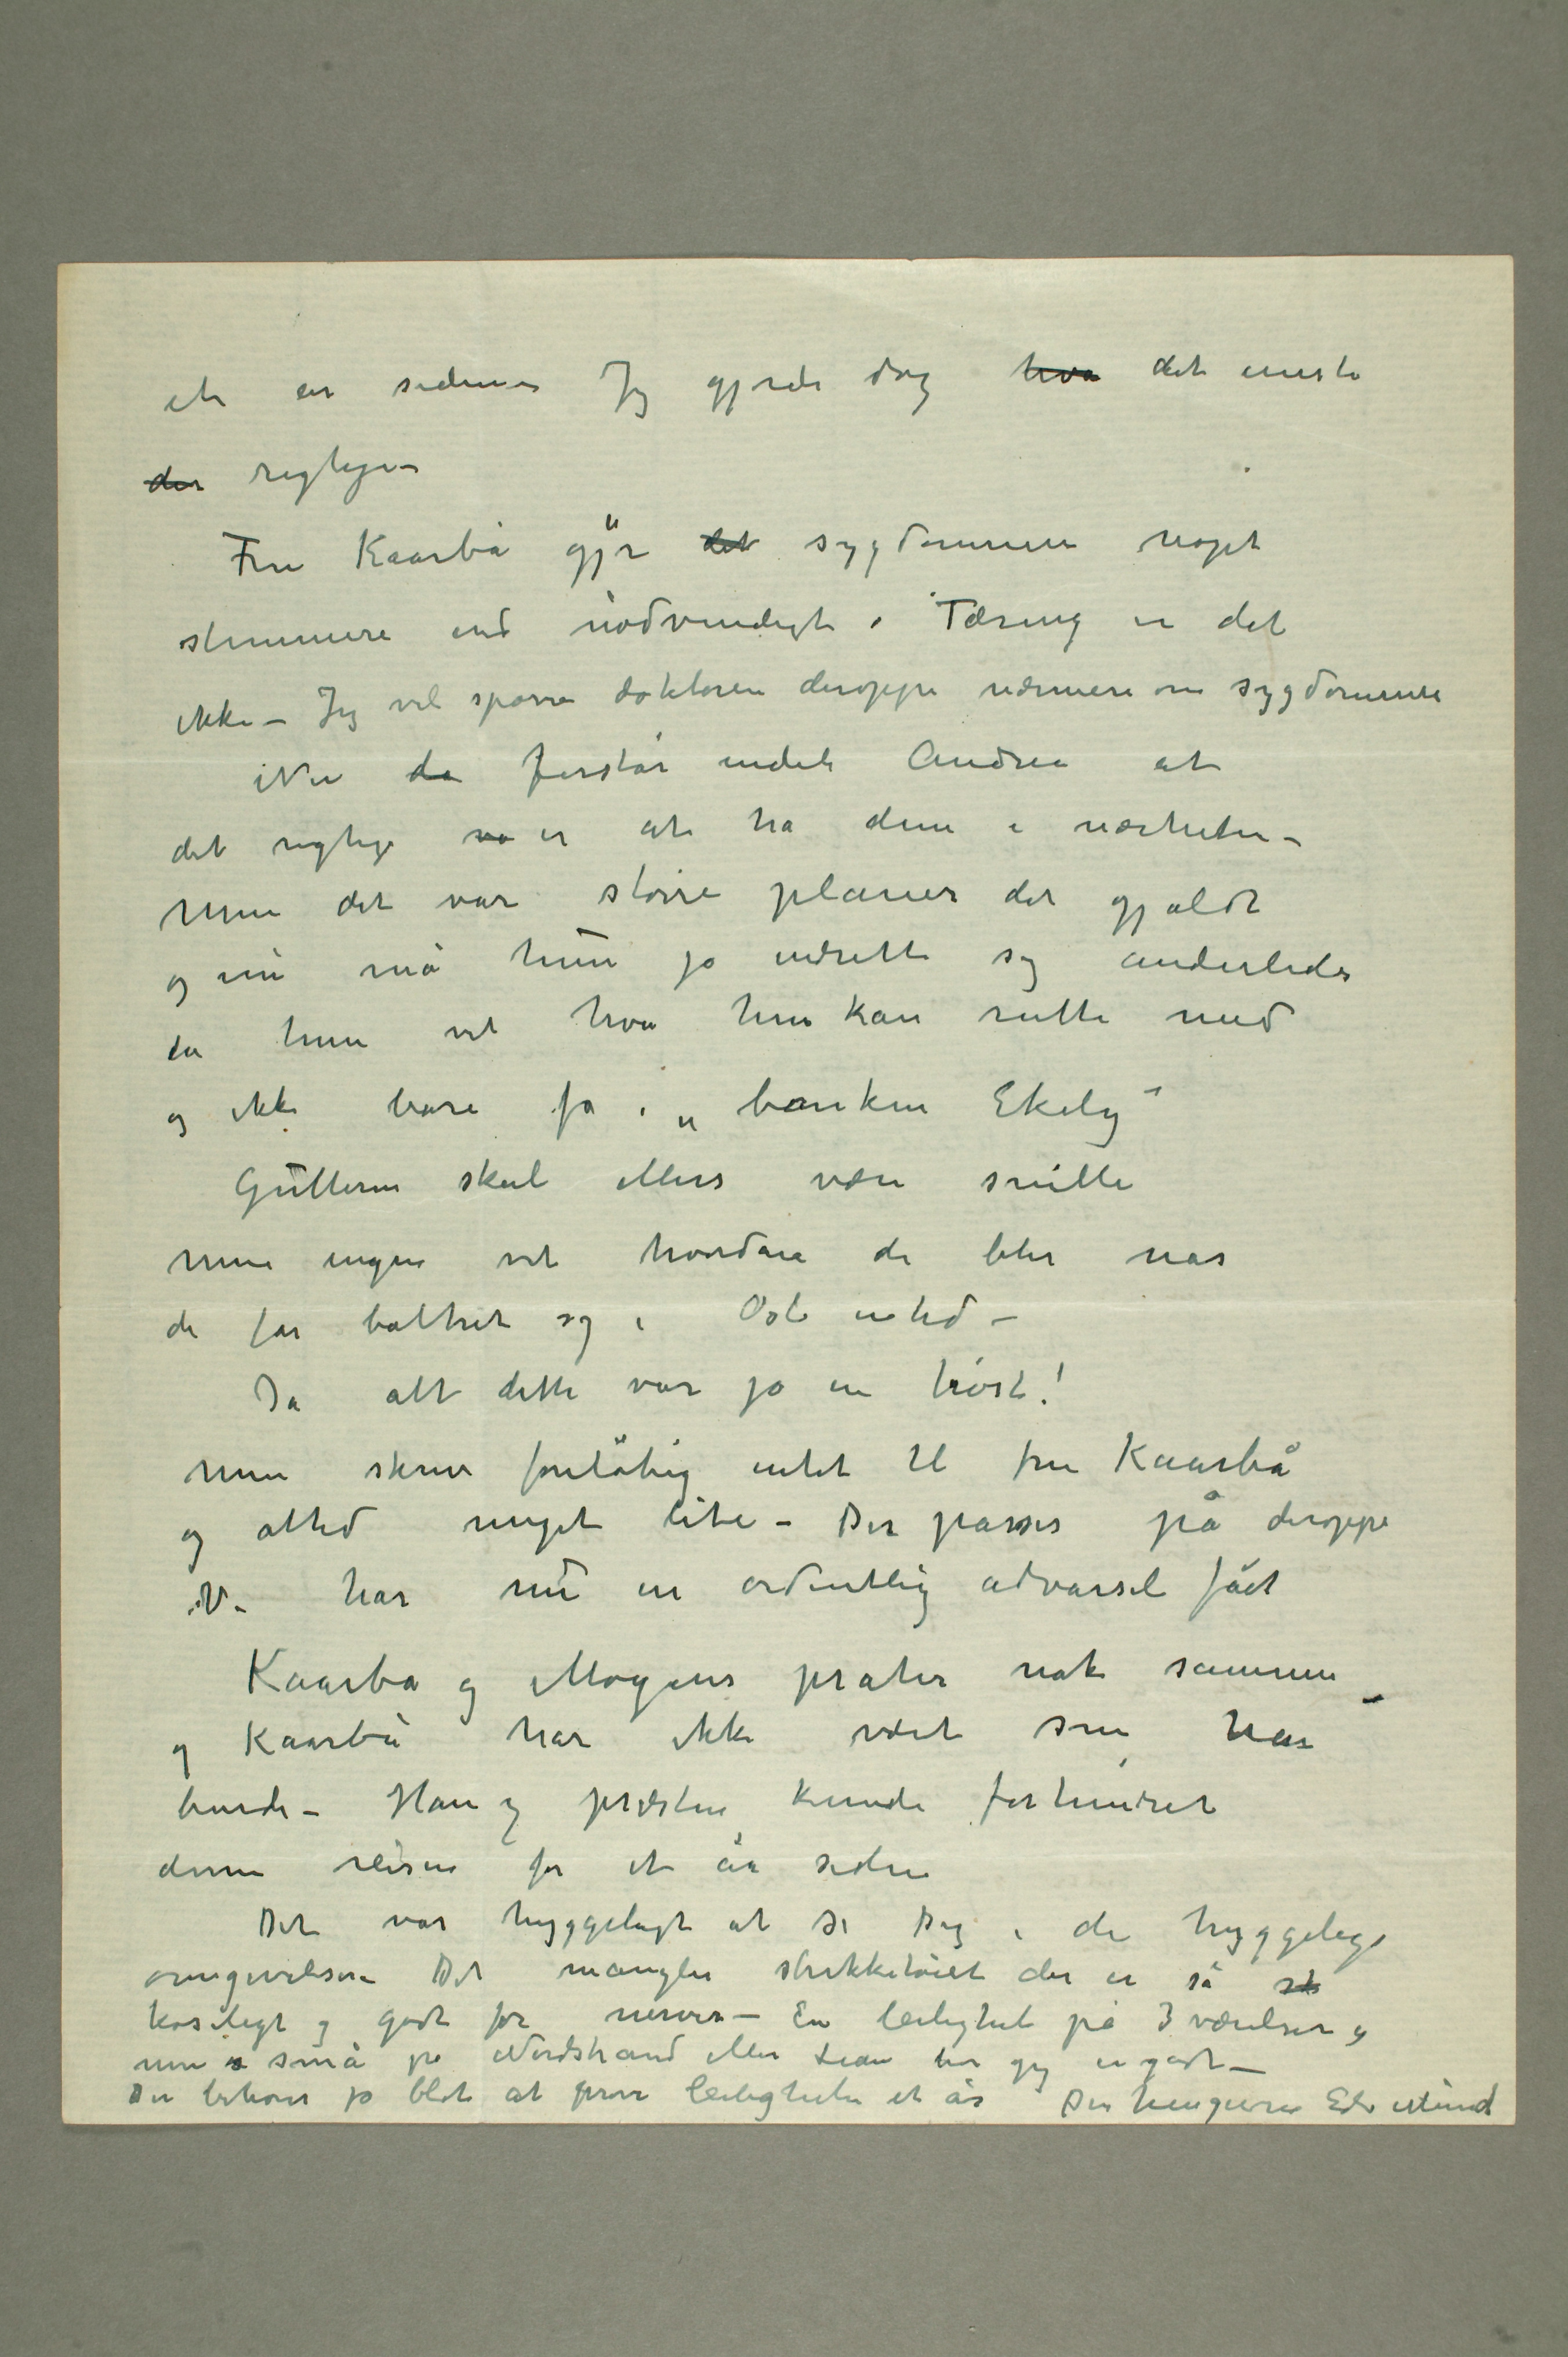 et år siden – Jeg gjorde dog hva det eneste
der rigtige –
Fru Kaarbå gjør det sygdommen noget
slemmere end nødvendigt. Tæring er det
ikke – Jeg vil spørre doktoren deroppe nærmere om sygdommen
Nu da forstår endeli Andrea at
det rigtige va er at ha dem i nærheten –
Men det var større planer det gjaldt
og nu må hun jo indrette sig anderledes
da hun vet hva hun kan rutte med
og ikke bare få i „banken Ekely“
Gutterne skal ellers være snille
men ingen vet hvordan de blir når
de får boltret sig i Oslo en tid –
Ja alt dette var jo en trøst!
Men skriv foreløbig intet til fru Kaarbå
og altid meget lite – Der passes på deroppe
Vi har nu en ordentlig advarsel fåt
Kaarbø og Mogens prater nok sammen –
og Kaarbø har ikke vært som han
burde – Han og præsten kunde forhindret
denne reisen for et år siden
Det var hyggeligt at se Dig i de hyggelige
omgivelser – Det mangler strikketøiet der er så sk
koseligt og godt for nerver – En leilighet på 3 værelser og
men s små på Nordstrand eller Lian tror jeg er godt –
Du behøver jo blot at prøve leiligheten et år Din hengivne Edv Munch